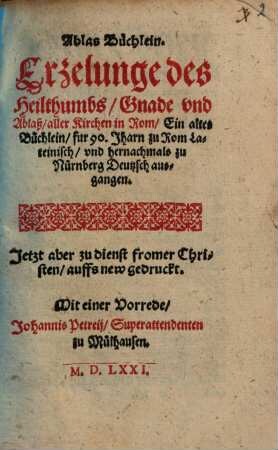 2
Ablas Büchlein.
Erzelunge des
Heilthumbs/ Gnade vnd
Ablaß/ aller Kirchen in Rom/ Ein altes
Büchlein/ fur 90. Jharn zu Rom La-
teinisch/ vnd hernachmals zu
Nürnberg Deutzsch aus-
gangen.
Jetzt aber zu dienst fromer Chri-
sten/ auffs new gedruckt.
Mit einer Vorrede/
Johannis Petreij/ Superattendenten
zu Mülhausen.
M. D. LXXI.